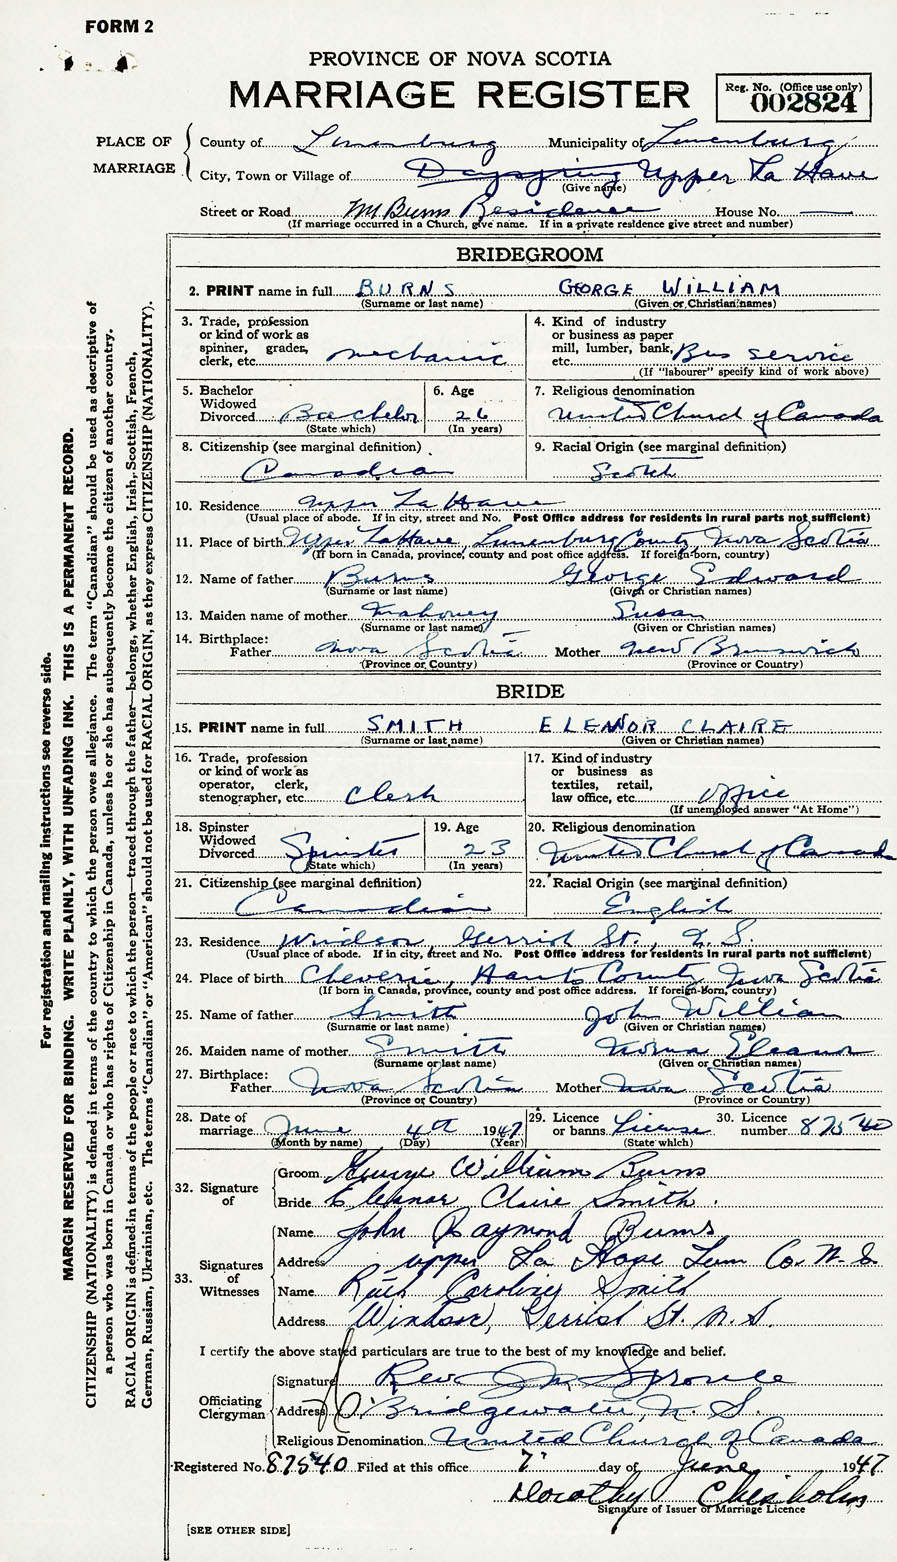 FORM 2
PROVINCE OF NOVA SCOTIA
MARRIAGE REGISTER
Reg. No. (Office use only)
002824
PLACE OF MARRIAGE
County of Lunenburg Municipality of Lunenburg
City, Town or Village of Dayspring Upper La Have
(Give name)
Street or Road Burns Residence House No. —
(If marriage occurred in a Church, give name. If in a private residence give street and number)
BRIDEGROOM
2. PRINT name in full BURNS GEORGE WILLIAM
(Surname or last name) (Given or Christian names)
3. Trade, profession or kind of work as spinner, grader, clerk, etc. mechanic
4. Kind of industry or business as paper mill, lumber, bank, etc. Bus service
(If "labourer" specify kind of work above)
5. Bachelor Widowed Divorced Bachelor
(State which)
6. Age 26
(In years)
7. Religious denomination United Church of Canada
8. Citizenship (see marginal definition) Canadian
9. Racial Origin (see marginal definition) Scotch
10. Residence Upper La Have
(Usual place of abode. If in city, street and No. Post Office address for residents in rural parts not sufficient)
11. Place of birth Upper LaHave, Lunenburg County, Nova Scotia
(If born in Canada, province, county and post office address. If foreign-born, country)
12. Name of father Burns George Edward
(Surname or last name) (Given or Christian names)
13. Maiden name of mother Mahoney Susan
(Surname or last name) (Given or Christian names)
14. Birthplace:
Father Nova Scotia Mother New Brunswick
(Province or Country) (Province or Country)
BRIDE
15. PRINT name in full SMITH ELEANOR CLAIRE
(Surname or last name) (Given or Christian names)
16. Trade, profession or kind of work as operator, clerk, stenographer, etc. Clerk
17. Kind of industry or business as textiles, retail, law office, etc. office
(If unemployed answer "At Home")
18. Spinster Widowed Divorced Spinster
(State which)
19. Age 23
(In years)
20. Religious denomination United Church of Canada
21. Citizenship (see marginal definition) Canadian
22. Racial Origin (see marginal definition) English
23. Residence Windsor, Gerrish St., N.S.
(Usual place of abode. If in city, street and No. Post Office address for residents in rural parts not sufficient)
24. Place of birth Cheverie, Hants County, Nova Scotia
(If born in Canada, province, county and post office address. If foreign-born, country)
25. Name of father Smith John William
(Surname or last name) (Given or Christian names)
26. Maiden name of mother Smith Norma Eleanor
(Surname or last name) (Given or Christian names)
27. Birthplace:
Father Nova Scotia Mother Nova Scotia
(Province or Country) (Province or Country)
28. Date of marriage June 4th 1947
(Month by name) (Day) (Year)
29. Licence or banns License
(State which)
30. Licence number 87540
32. Signature of
Groom George William Burns
Bride Eleanor Claire Smith.
33. Signatures of Witnesses
Name John Raymond Burns
Address upper La Have Lun Co. N. S
Name Ruth Caroline Smith
Address Windsor, Gerrish St. N. S.
I certify the above stated particulars are true to the best of my knowledge and belief.
Officiating Clergyman
Signature Rev. Sproule
Address Bridgewater, N. S.
Religious Denomination United Church of Canada
Registered No. 87540 Filed at this office 7 day of June 1947
Dorothy Chisholm
Signature of Issuer of Marriage Licence
[SEE OTHER SIDE]
For registration and mailing instructions see reverse side.
MARGIN RESERVED FOR BINDING. WRITE PLAINLY, WITH UNFADING INK. THIS IS A PERMANENT RECORD.
CITIZENSHIP (NATIONALITY) is defined in terms of the country to which the person owes allegiance. The term "Canadian" should be used as descriptive of
a person who was born in Canada or who has rights of Citizenship in Canada, unless he or she has subsequently become the citizen of another country.
RACIAL ORIGIN is defined in terms of the people or race to which the person—traced through the father—belongs, whether English, Irish, Scottish, French,
German, Russian, Ukrainian, etc. The terms "Canadian" or "American" should not be used for RACIAL ORIGIN, as they express CITIZENSHIP (NATIONALITY).